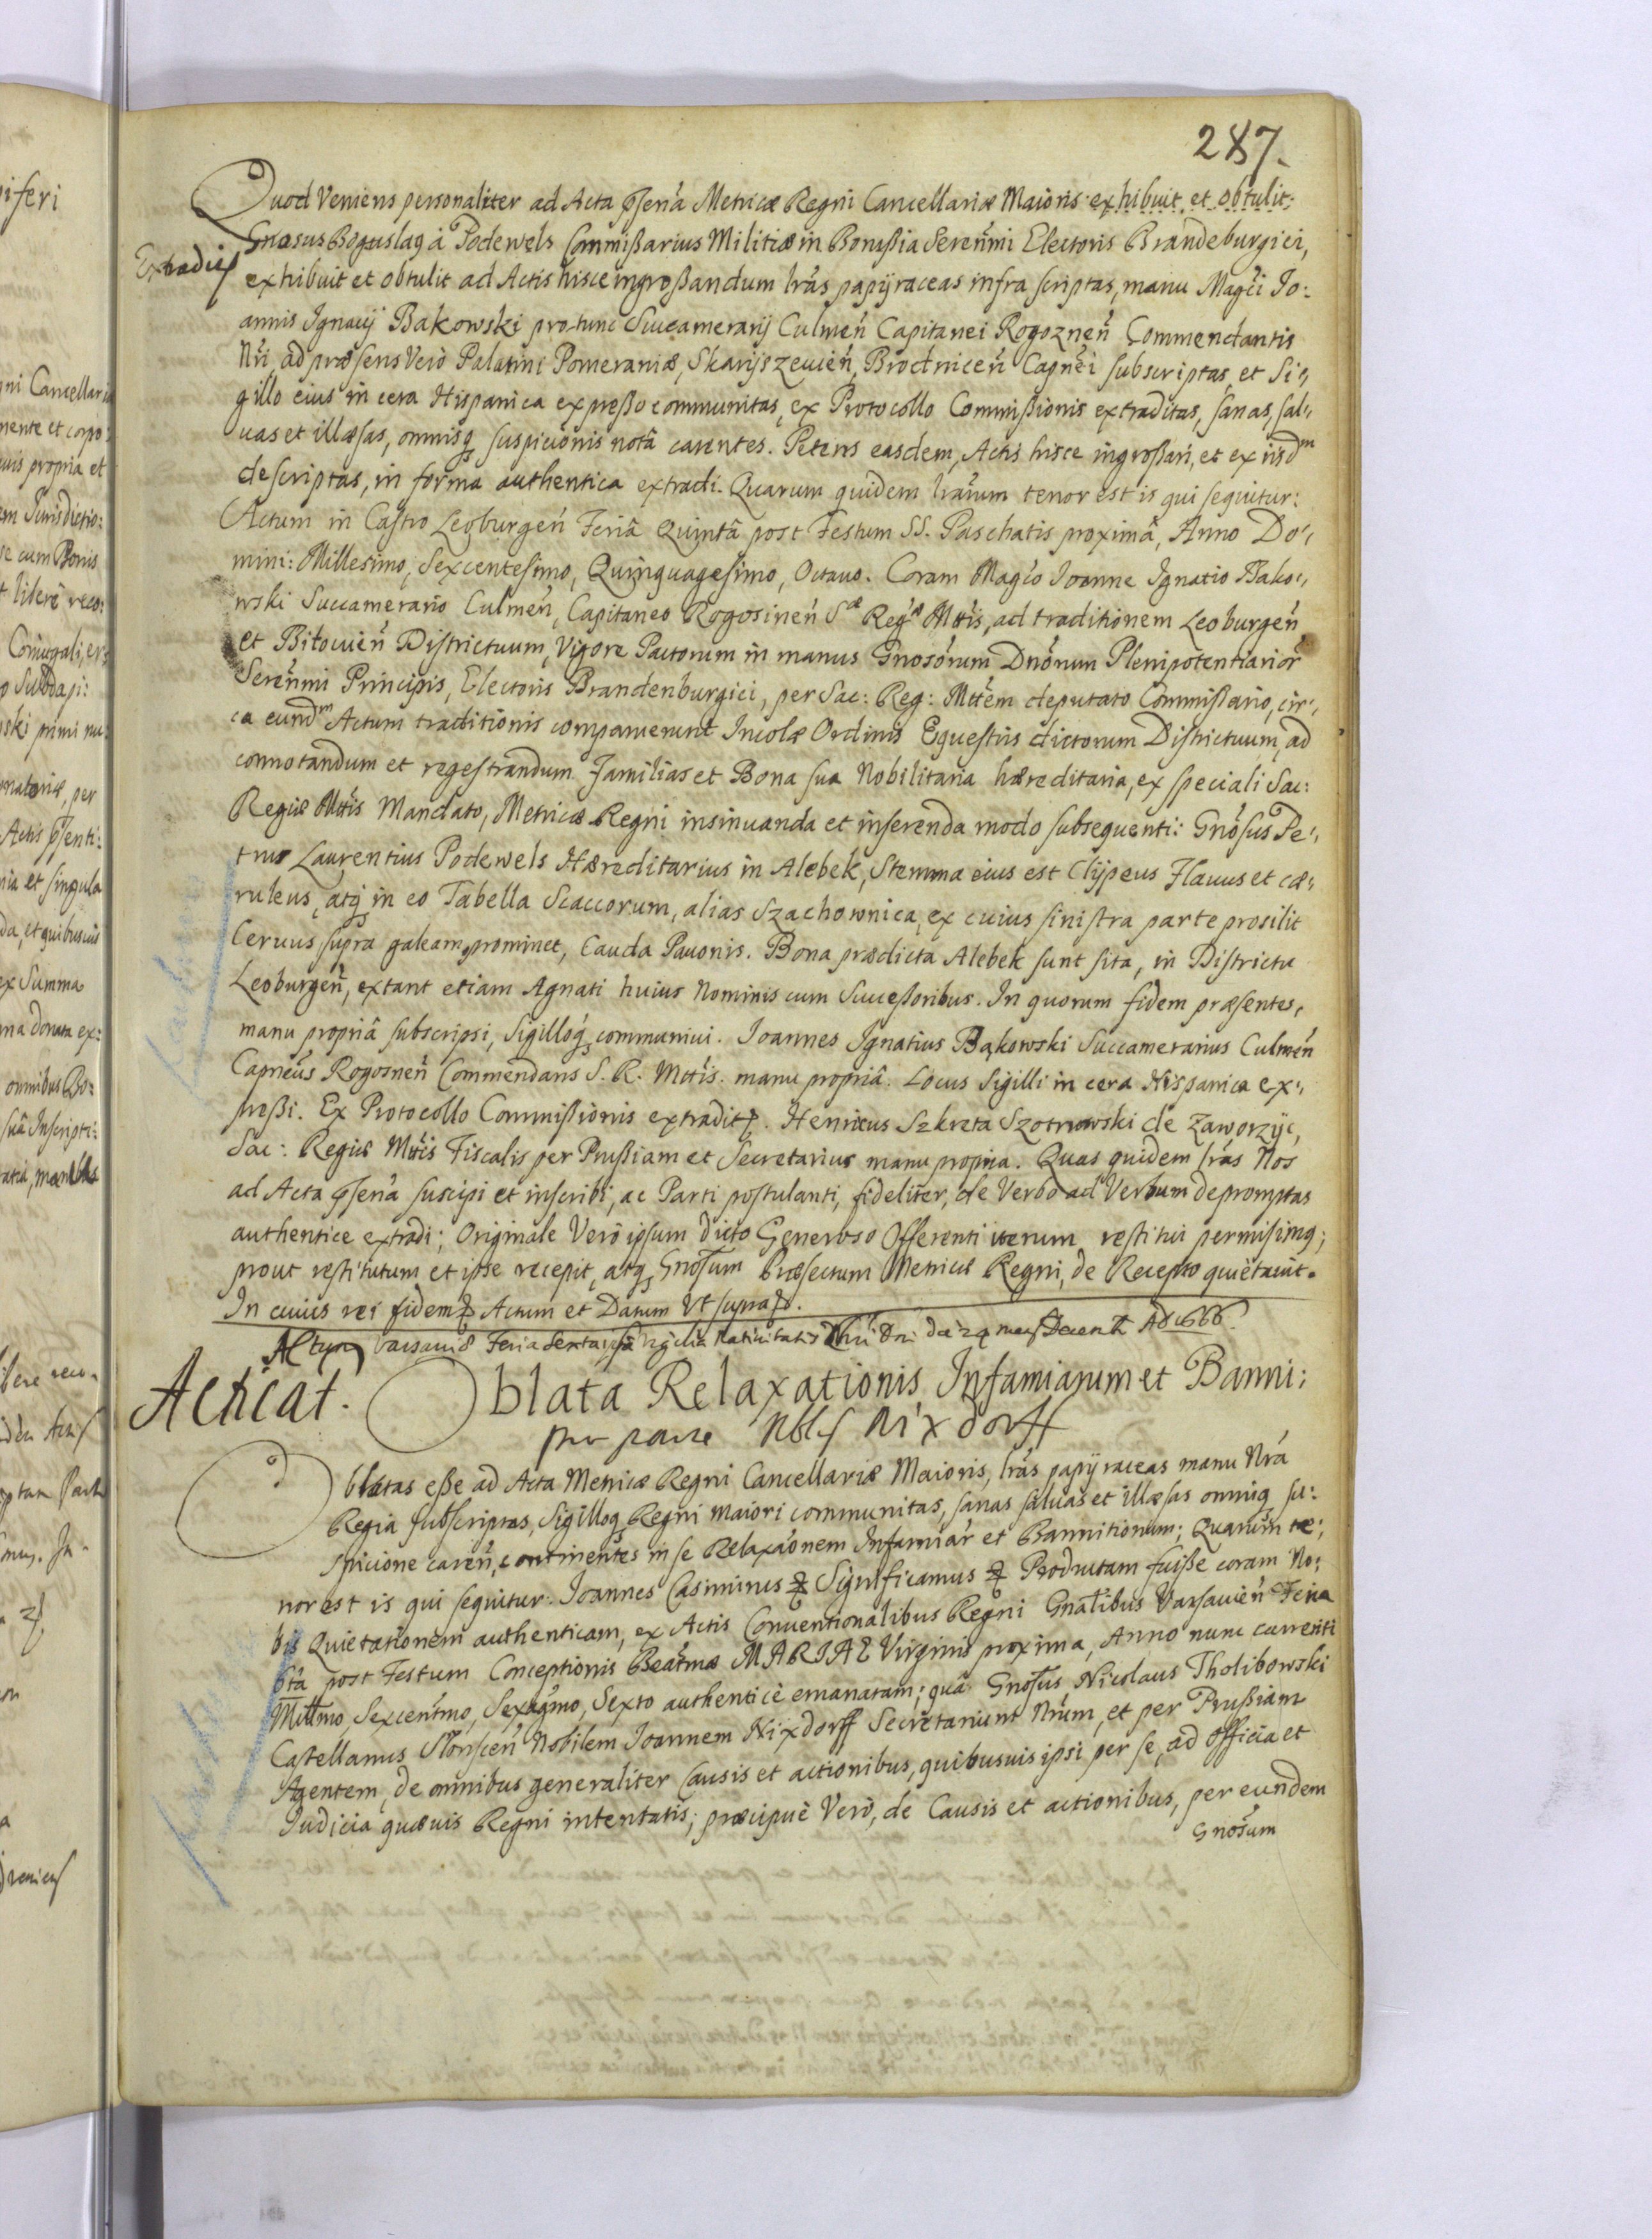 287.
Quod Veniens personaliter ad Acta pſenã Metricæ Regni Cancellariæ Maioris exhibuit et obtulit
Gnosus Boguslaq à Podewels Commißarius Militiæ in Borußia Sereñmi Electoris Brandeburgici,
Extradit
exhibuit et obtulit ad Actis hisce ingroßandum lrãs papÿraceas infra scriptas, manu Magci Jo:
annis Jgnatij Bakowski pro-tunc Succamerarij Culmeñ Capitanei Rogozneñ Commendantis
Nri, ad præsens Verò Palatini Pomeraniæ, Skarÿszewieñ, Brodniceñ Capnei subscriptas, et Si„
gillo eius in cera Hispanica expreßo communitas, ex Protocollo Commißionis extraditas, sanas, sal„
uas et illæsas, omnisq suspicionis notâ carentes. Petens easdem, Actis hisce ingroßari, et ex iisdm
descriptas, in forma authentica extradi. Quarum quidem lrarum tenor est is qui sequitur:
Actum in Castro Leoburgeñ Feriâ Quintâ post Festum SS. Paschatis proximâ, Anno Do„
mini: Millesimo, Sexcentesimo, Quinquagesimo, Octauo. Coram Magco Joanne Ignatio Bako„
wski Succamerario Culmeñ, Capitaneo Rogosineñ Sæ Regæ Mttis, ad traditionem Leoburgeñ
et Bitouieñ Districtuum, Vigore Pactorum in manus Gnosorum Dnorum Plenipotentiarior
Sereñmi Principis, Electoris Brandenburgici, per Sac: Reg: Mttem deputato Commißario, cir„
ca eundm Actum traditionis comparuerunt Incolæ Ordinis Equestris dictorum Districtuum, ad
connotandum et regestrandum Familias et Bona sua Nobilitaria hæreditaria, ex speciali Sac:
Regiæ Mttis Mandato, Metricæ Regni insinuanda et inserenda modo subsequenti: Gnosus Pe„
trus Laurentius Podewels Hæreditarius in Alebek, Stemma eius est Clÿpeus Flauus et cæ„
ruleus, atq in eo Tabella Scaccorum, alias Szachownica, ex cuius sinistra parte prosilit
Ceruus, supra galeam prominet, Cauda Pauonis. Bona prædicta Alebek sunt sita, in Districtu
Leoburgeñ, extant etiam Agnati huius Nominis cum Succeßoribus. In quorum fidem præsentes,
manu propriâ subscripsi, Sigilloq communiui. Joannes Ignatius Bąkowski Succamerarius Culmeñ
Capneus Rogosneñ Commendans S. R. Mttis. manu propriâ. Locus Sigilli in cera Hispanica ex„
preßi. Ex Protocollo Commißionis extradit. Henricus Szkreta Szotnowski de Zaworzÿc,
Sac: Regiæ Mttis Fiscalis per Prußiam et Secretarius manu propria. Quas quidem lrãs Nos
ad Acta pſenã suscipi et inscribi, ac Parti postulanti, fideliter, de Verbo ad Verbum depromptas
authentice extradi; Originale Verò ipsum dicto Generoso Offerenti iterum restitui permisimq;
prout restitutum et ipse recepit, atq Gnosum Præfectum Metricæ Regni, de Recepto quietauit.
In cuius rei fidem Actum et Datum Vt supra.
Actum Varsauiæ Feria Sexta Natiuitatis
Acticat. Oblata Relaxationis Infamiarum et Banni:
pro parte Nblis Nixdorff
Oblatas eße ad Acta Metricæ Regni Cancellariæ Maioris, lrãs papÿraceas manu Nrã
Regia subscriptas, Sigilloq Regni maiori communitas, sanas saluas et illæsas omniq su:
spicione careñ, continentes in se Relaxãonem Infamiar et Bannitionum; Quarum te:
nor est is qui sequitur: Joannes Casimirus Significamus Productam fuiße coram No:
bis Quietationem authenticam, ex Actis Conuentionalibus Regni Gnãlibus Varsauieñ Feria
6ta post Festum Conceptionis Beatmæ MARIAE Virginis proxima, Anno nunc currenti
Millmo, Sexcentmo, Sexagmo, Sexto authenticè emanatam; quâ Gnosus Nicolaus Tholibowski
Castellanus Nobilem Joannem Nixdorff Secretarium Nrum, et per Prußiam
Agentem, de omnibus generaliter Causis et actionibus, quibusuis ipsi per se, ad officia et
Iudicia quæuis Regni intentatis; præcipuè Verò, de Causis et actionibus, per eundem
Gnosum